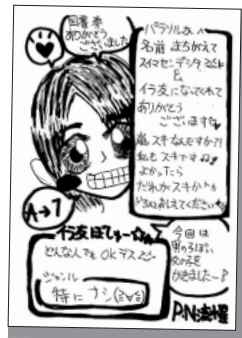 図書券
ありがとう
ございました
パラソルさんへ
名前 まちがえて
スイマセンデシタ
&
イラ友になってくれて
ありがとう
ございます
嵐スキなんですか?!
私も スキですね!
よかったら
だれがスキかとか
いろいろおしえてください
A→7
イラ友ぼしゅー☆
どんな人でも OKデス
ジャンル
特にナシ(≧∀≦)
今回は
男のっぽい
女の子を
かきました～!
P.N